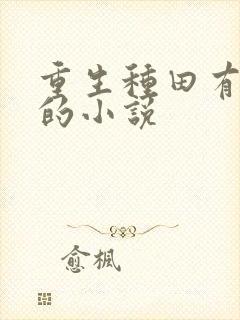 重生種田有
的小說
愈楓